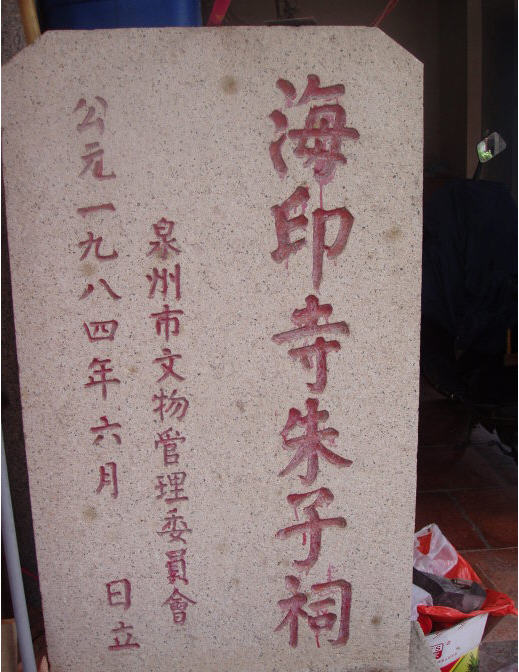 海印寺朱子祠
泉州市文物管理委員會
公元一九八四年六月 日立